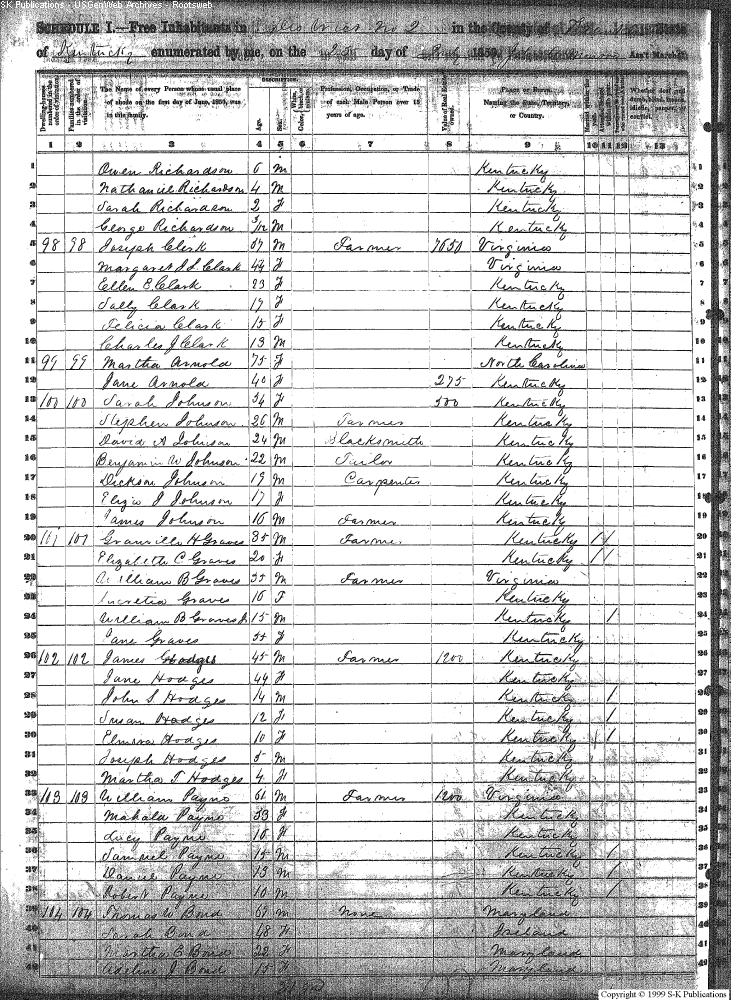 S-K Publications - USGenWeb Archives - Rootsweb
SCHEDULE I.—Free Inhabitants in No 2 in the County of State
of Kentucky enumerated by me, on the day of 1850. Ass't Marshal.
Dwelling-houses numbered in the order of visitation. Families numbered in the order of visitation. The Name of every Person whose usual place of abode on the first day of June, 1850, was in this family. DESCRIPTION. Age. Sex. Color, Profession, Occupation, or Trade of each Male Person over 15 years of age. Value of Real Estate owned. PLACE OF BIRTH. Naming the State, Territory, or Country. Whether deaf and dumb, blind, insane, idiotic, pauper, or convict.
1 2 3 4 5 6 7 8 9 10 11 12 13
1 Owen Richardson 6 M Kentucky 1
2 Nathaniel Richardson 4 M Kentucky 2
3 Sarah Richardson 2 F Kentucky 3
4 George Richardson 3/12 M Kentucky 4
5 98 98 Joseph Clark 57 M Farmer 7650 Virginia 5
6 Margaret J. S. Clark 44 F Virginia 6
7 Ellen E. Clark 23 F Kentucky 7
8 Sally Clark 17 F Kentucky 8
9 Felicia Clark 15 F Kentucky 9
10 Charles J Clark 13 M Kentucky 10
11 99 99 Martha Arnold 75 F North Carolina 11
12 Jane Arnold 40 F 275 Kentucky 12
13 100 100 Sarah Johnson 54 F 500 Kentucky 13
14 Stephen Johnson 26 M Farmer Kentucky 14
15 David A Johnson 24 M Blacksmith Kentucky 15
16 Benjamin W Johnson 22 M Tailor Kentucky 16
17 Dickson Johnson 19 M Carpenter Kentucky 17
18 Eliza J Johnson 17 F Kentucky 18
19 James Johnson 16 M Farmer Kentucky 19
20 101 101 Granville H Graves 35 M Farmer Kentucky 1 1 20
21 Elizabeth C Graves 20 F Kentucky 1 1 21
22 William B Graves 55 M Farmer Virginia 22
23 Lucretia Graves 16 F Kentucky 23
24 William B Graves Jr 15 M Kentucky 1 24
25 Jane Graves 55 F Kentucky 25
26 102 102 James Hodges 45 M Farmer 1200 Kentucky 26
27 Jane Hodges 44 F Kentucky 27
28 John S Hodges 14 M Kentucky 1 28
29 Susan Hodges 12 F Kentucky 1 29
30 Elmira Hodges 10 F Kentucky 1 30
31 Joseph Hodges 5 M Kentucky 31
32 Martha T Hodges 4 F Kentucky 32
33 103 103 William Payne 61 M Farmer 1200 Virginia 33
34 Mahala Payne 53 F Kentucky 34
35 Lucy Payne 16 F Kentucky 35
36 Samuel Payne 15 M Kentucky 1 36
37 Daniel Payne 13 M Kentucky 1 37
38 Robert Payne 10 M Kentucky 1 38
39 104 104 Thomas W Bond 67 M None Maryland 39
40 Sarah Bond 48 F Ireland 40
41 Martha E Bond 22 F Maryland 41
42 Adeline J Bond 15 F Maryland 42
Copyright © 1999 S-K Publications